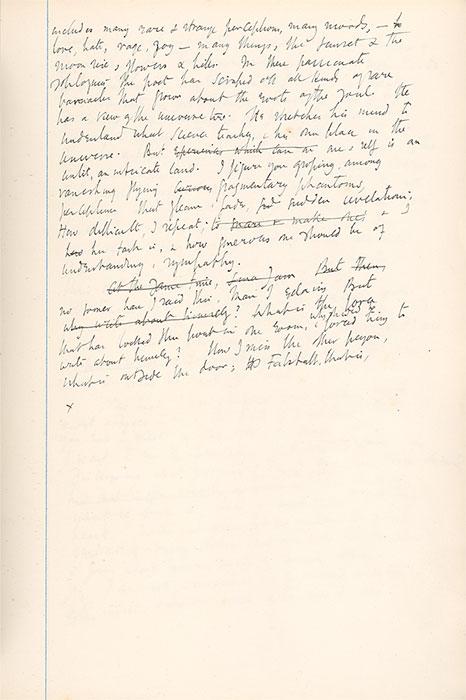 includes many rare & strange perceptions, many moods, —
love, hate, rage, joy — many things, the sunset & the
moon rise, flowers & hills. In these passionate
soliloquies the poet has scraped off all kinds of rare
barnacles that grow about the roots of the soul. He
has a view of the universe too. He stretches his mind to
understand what science teaches, his own place in the
universe. But Experiences which can as one self is an
untilt, an intricate land. I figure you groping, among
vanishing flying fragmentary phantoms,
perceptions that gleam, fade, sudden revelations;
How difficult, I repeat; to make & I
her task is, & how generous one should be of
understanding, sympathy.
At the same time, But then,
no sooner have I said this, than I But
why write about himself? What is the force
that has locked this poet in one room, why forced him to
write about himself? How I miss the other person,
what is outside the door; Falstaff, that is,
x